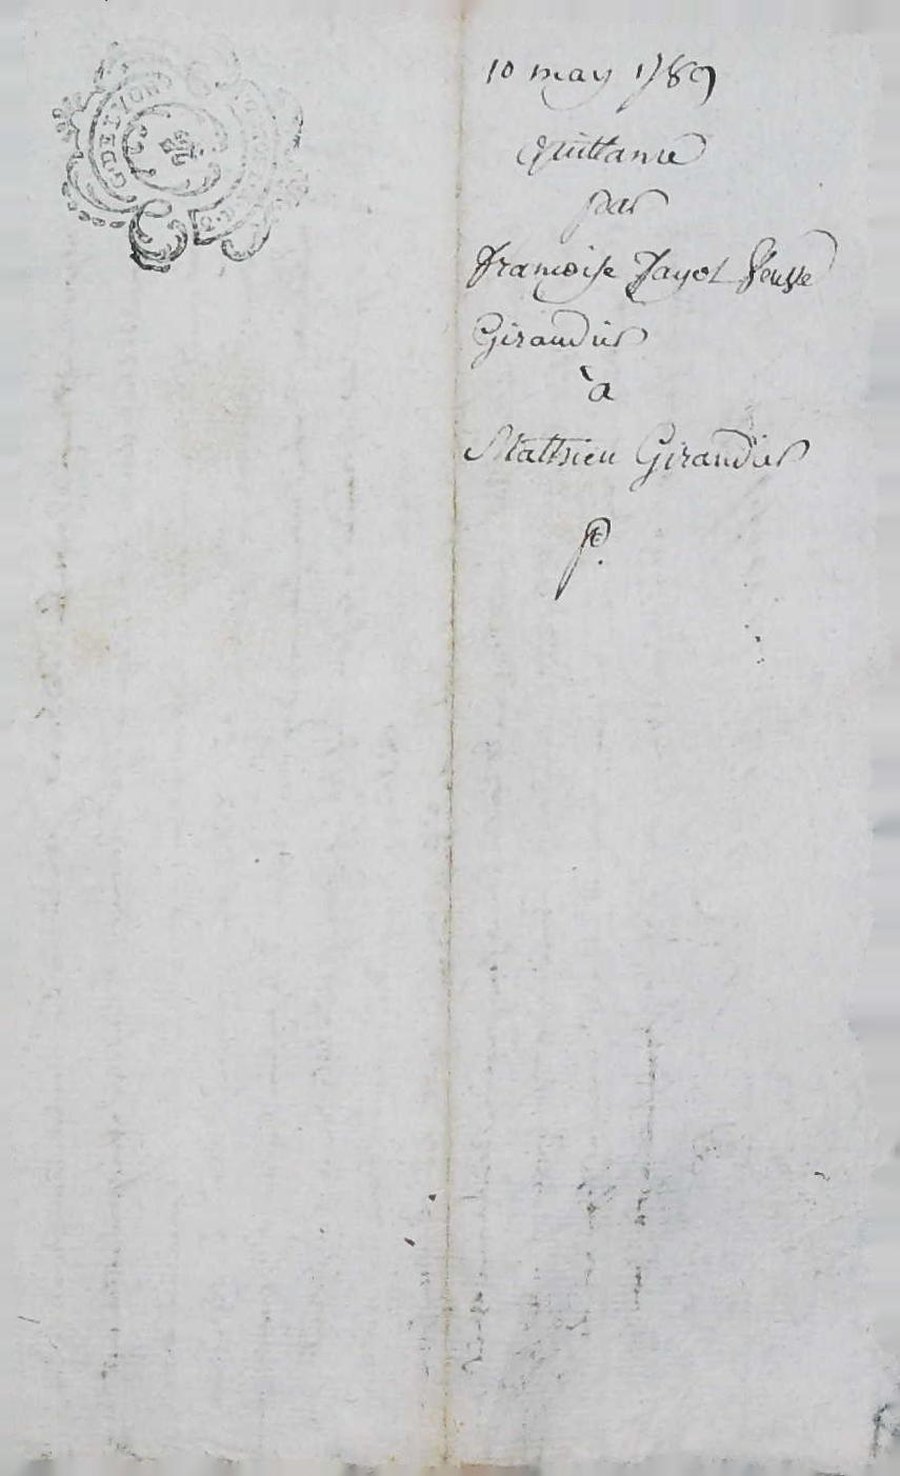 10 may 1789
Quittance
par
françoise fayol Veuve
Giraudier
à
Mathieu Giraudier